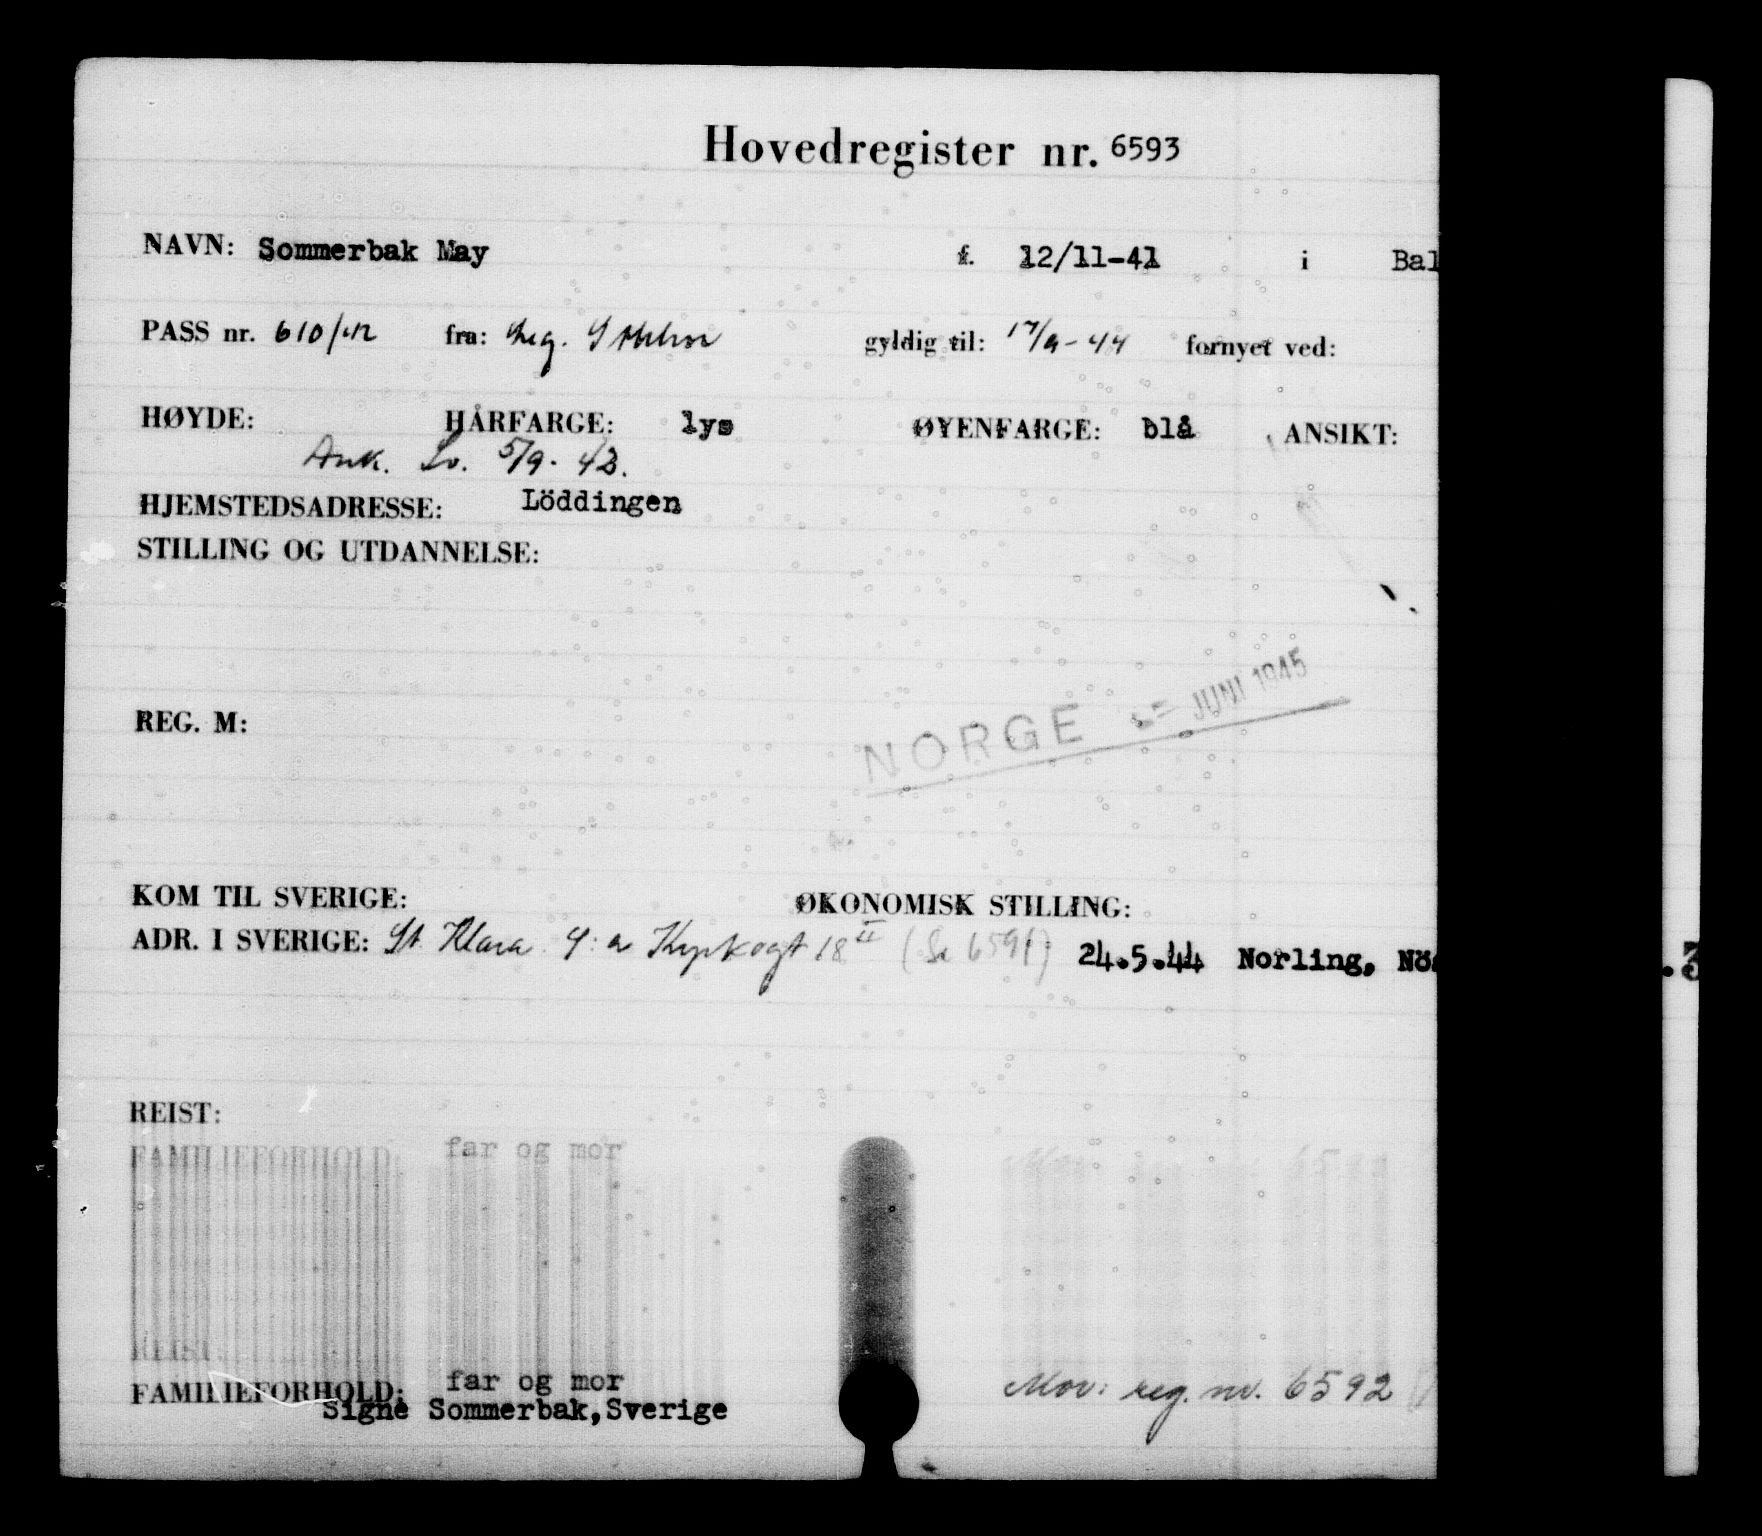 Hovedregister nr. 6593
NAVN: Sommerbak May f. 12/11-41 i Bal
PASS nr. 610/42 fra: Leg. Sthlm gyldig til: 17/9-44 fornyet ved:
HØYDE: HÅRFARGE: lys ØYENFARGE: blå ANSIKT:
Ank. Sv. 5/9. 42.
HJEMSTEDSADRESSE: Löddingen
STILLING OG UTDANNELSE:
REG. M:
NORGE JUNI 1945
KOM TIL SVERIGE: ØKONOMISK STILLING:
ADR. I SVERIGE: St. Klara 18 II (Se 6591) 24.5.44 Norling, Nö
.3
REIST:
FAMILIEFORHOLD: far og mor
REIST:
FAMILIEFORHOLD: far og mor Mor: reg. nr. 6592
Signe Sommerbak, Sverige